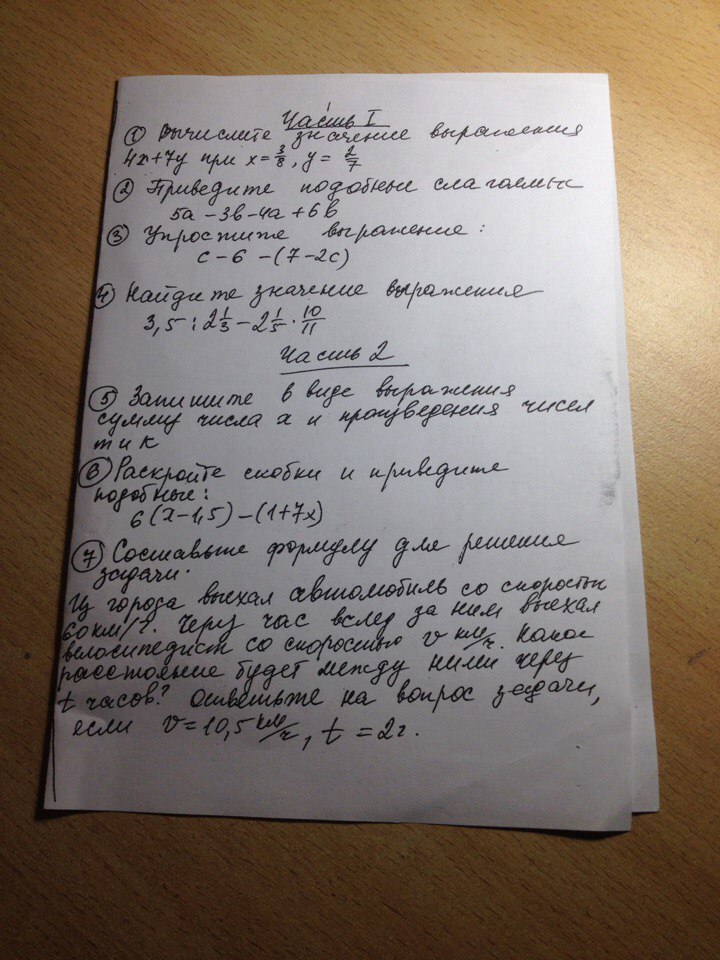 Часть I
① Вычислите значение выражения
4x+7y при x=3/8, y= 2/7
② Приведите подобные слагаемые
5a-3b-4a+6b
③ Упростите выражение:
c-6-(7-2c)
④ Найдите значение выражения
3,5:2 1/3-2 1/5·10/11
Часть 2
⑤ Запишите в виде выражения
сумму числа x и произведения чисел
m и k
⑥ Раскройте скобки и приведите
подобные:
6(x-1,5)-(1+7x)
⑦ Составьте формулу для решения
задачи.
Из города выехал автомобиль со скоростью
60 км/ч. Через час вслед за ним выехал
велосипедист со скоростью v км/ч. Какое
расстояние будет между ними через
t часов? Ответьте на вопрос задачи,
если v=10,5 км/ч, t=2ч.